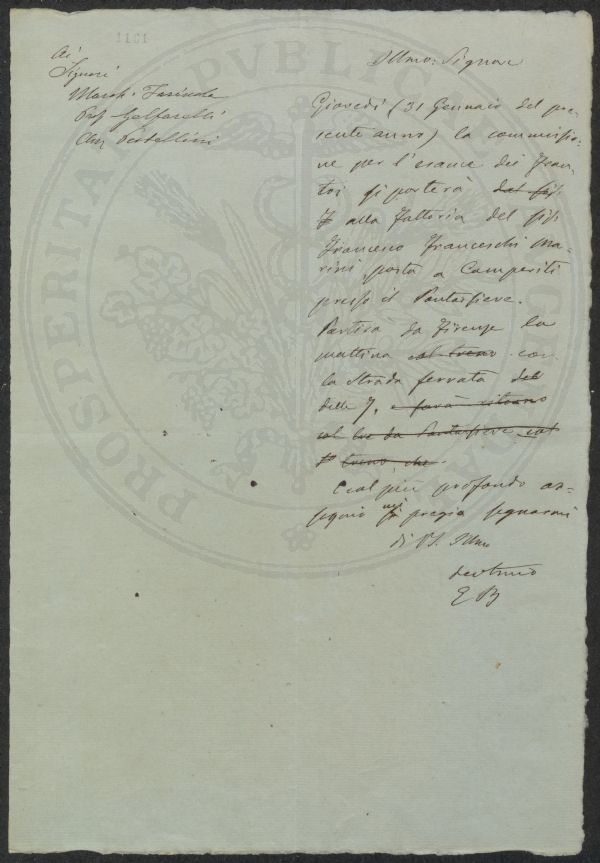 1161
Ai
Signori
March. Farinola
Prof Galfarelli
Cav Pestellini
Illmo: Signore
Giovedì (31 Gennaio del pre-
sente anno) la commissio-
ne per l'esame dei Fran-
toi si porterà
alla Fattoria del Sig.
Francesco Franceschi Ma-
rini posta a Camperiti
presso il Pontassieve.
Partirà da Firenze la
mattina col treno con
la strada ferrata del
delle 7, e farà ritorno
col da Pontassieve col
treno che.
Col più profondo os-
sequio mi pregio segnarmi
di VS. Illma
devotmo
E B
PROSPERITATI PUBLICAE